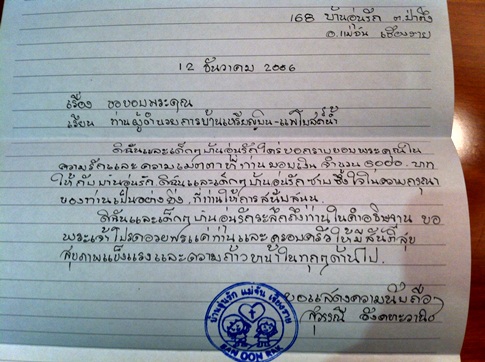 168 บ้านอุ่นรัก ต.ป่าตึง
อ.แม่จัน เชียงราย
12 ธันวาคม 2006
เรื่อง ขอขอบพระคุณ
เรียน ท่านผู้อำนวยการบ้านเหรียญเงิน-แม่โบสถ์น้ำ
ดิฉันและเด็กๆบ้านอุ่นรักใคร่ขอกราบขอบพระคุณใน
ความรักและความเมตตาที่ท่านมอบเงิน จำนวน ๕๐๐๐.-บาท
ให้กับบ้านอุ่นรัก ดิฉันและเด็กๆบ้านอุ่นรักซาบซึ้งใจในความกรุณา
ของท่านเป็นอย่างยิ่ง ที่ท่านให้การสนับสนุน
ดิฉันและเด็กๆบ้านอุ่นรักระลึกถึงท่านในคำอธิษฐาน ขอ
พระเจ้าโปรดอวยพรแด่ท่านและครอบครัว ให้มีสันติสุข
สุขภาพแข็งแรงและความก้าวหน้าในทุกๆด้านไป.
ขอแสดงความนับถือ
สุวรรณี
บ้านอุ่นรัก แม่จัน เชียงราย
BAN OON RAK